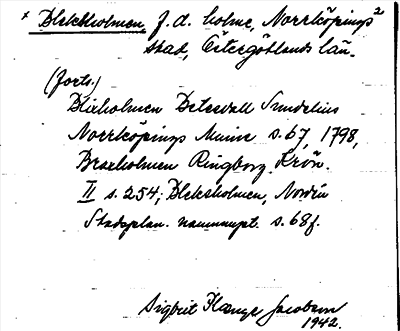 * Bleksholmen, f.d. holme, Norrköpings 2
stad, Östergötlands län.
(forts.)
Blixholmen Betevall Sundelius
Norrköpings Minne s. 67, 1798,
Broxholmen Ringborg. Krön.
II s. 254; Bleksholmen, Nordén
Stadsplan. namnuppt. s. 68f.
Sigbrit Plænge Jacobson
1942.